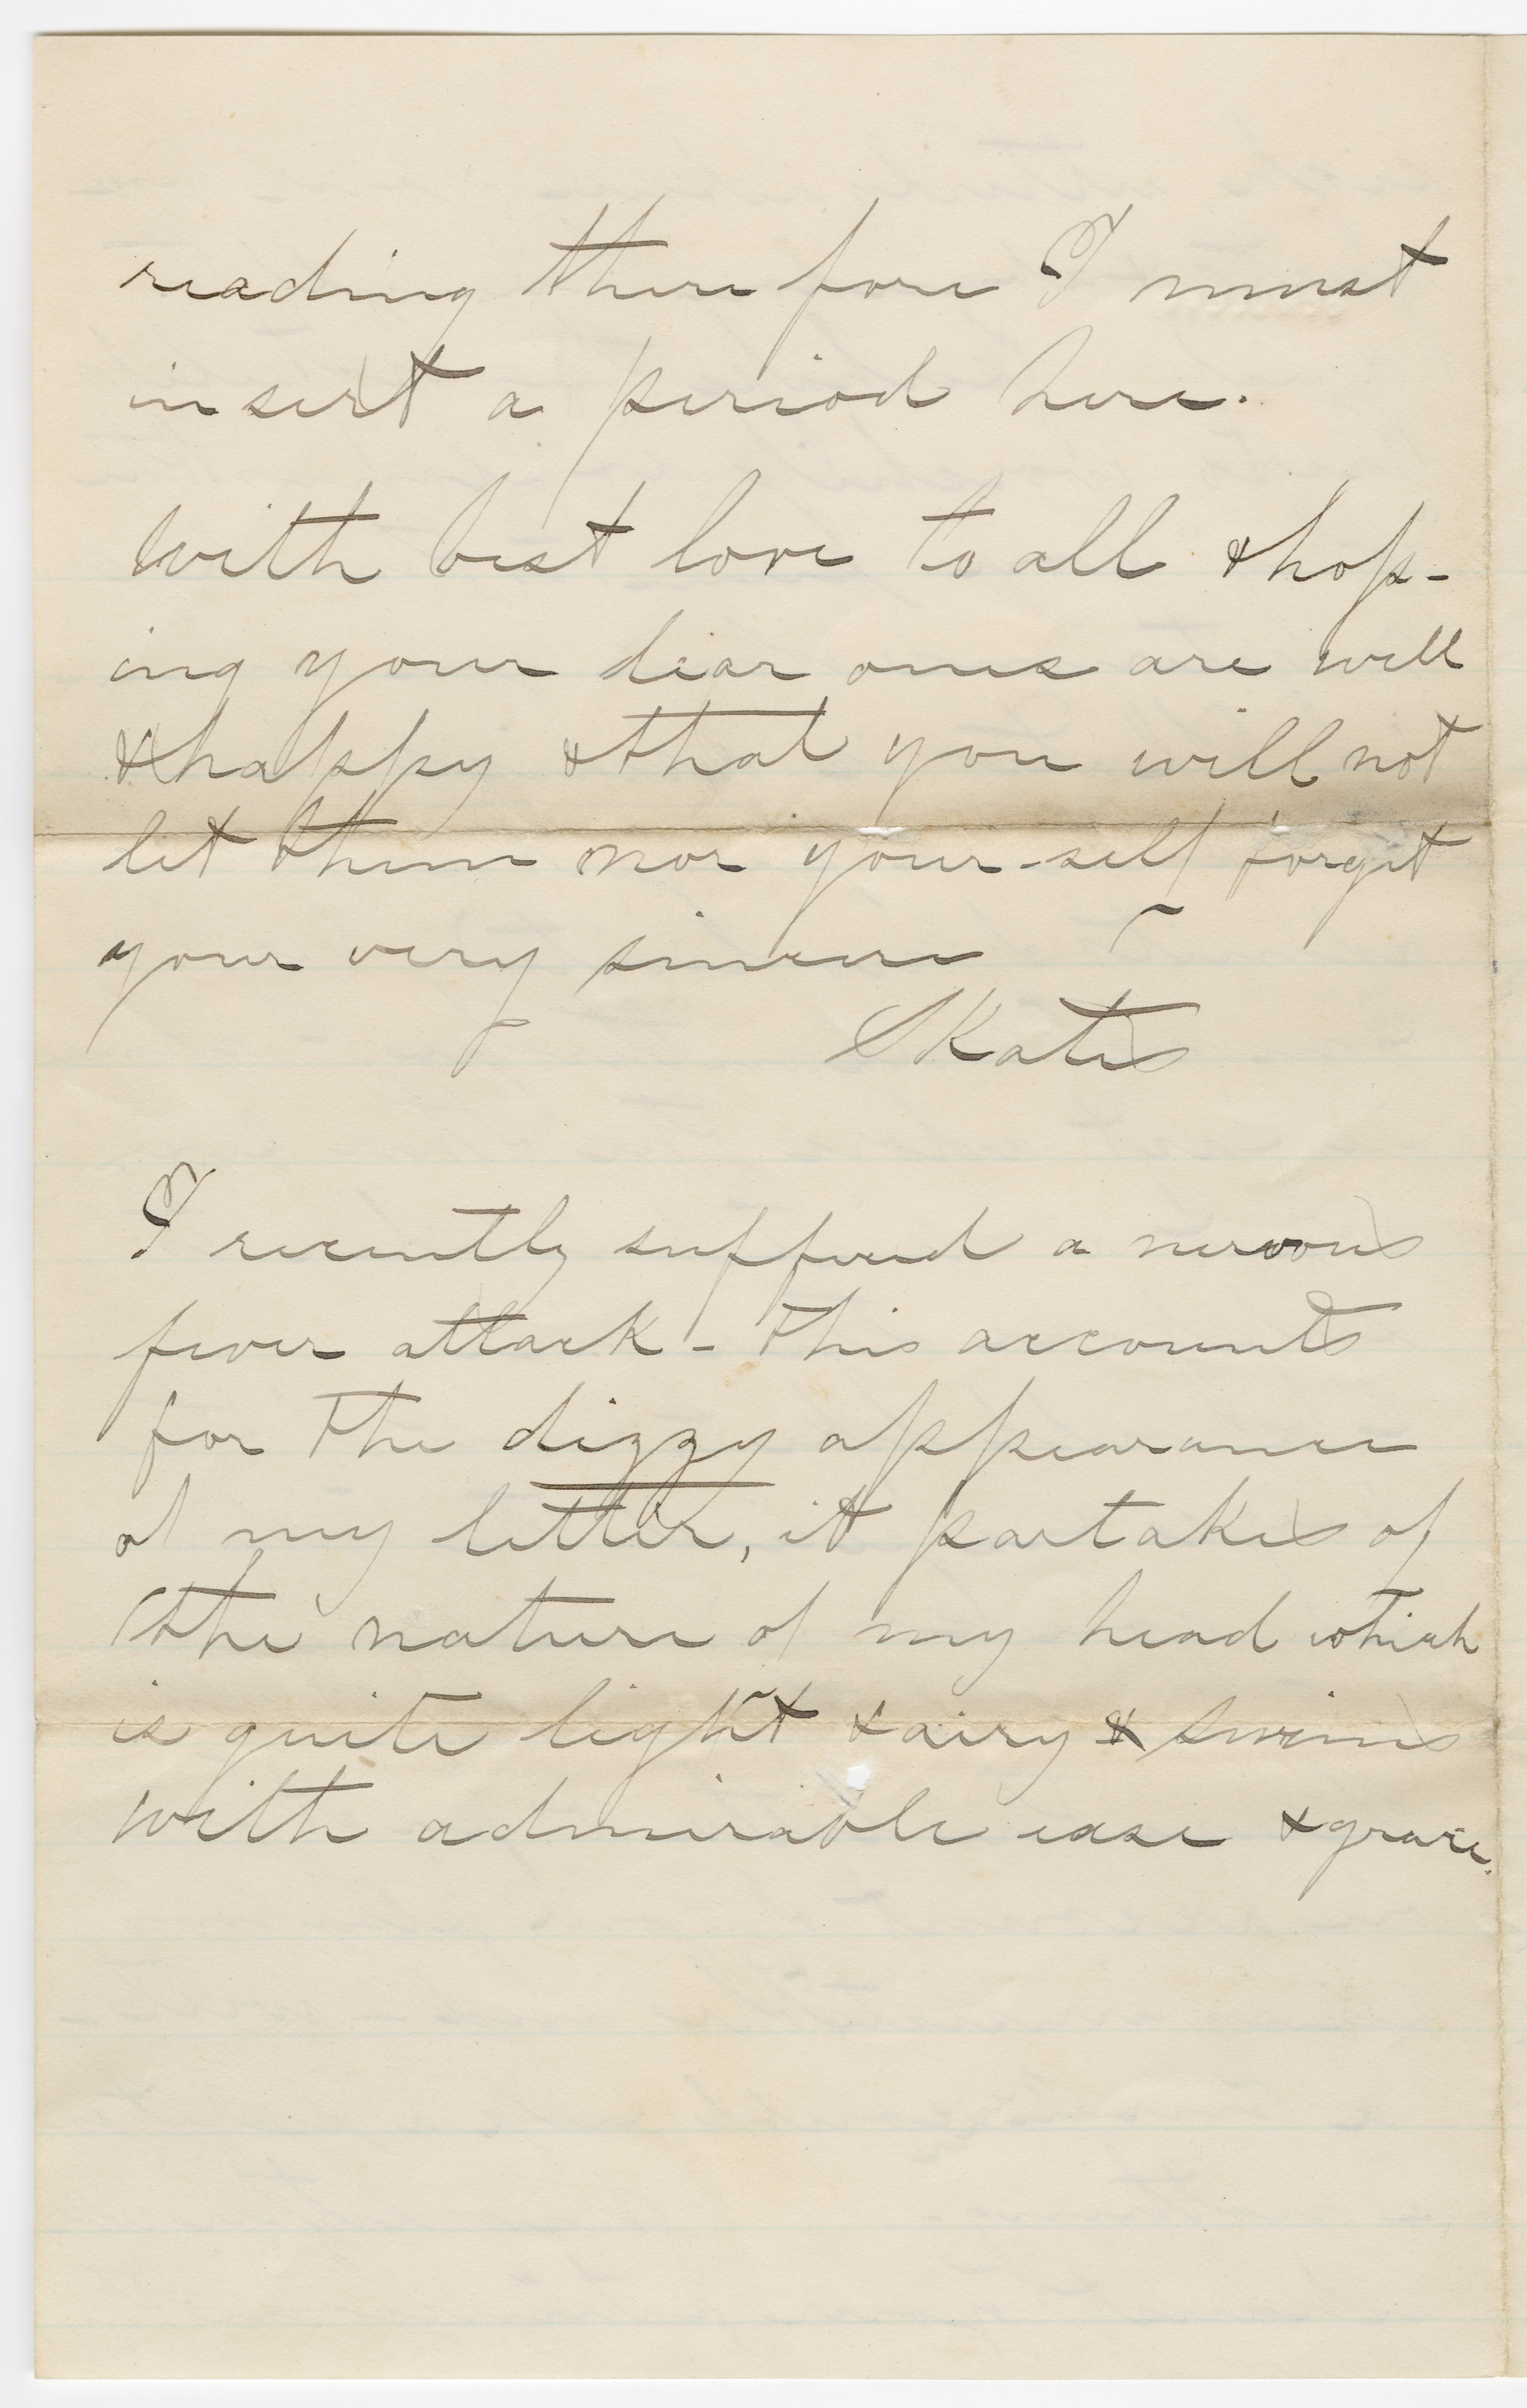 reading therefore I must
insert a period here.
With best love to all & hop-
ing your dear ones are well
& happy & that you will not
let them nor your-self forget
your very sincere ~
Skates
I recently suffered a nervous
fever attack - this accounts
for the dizzy appearance
of my letter, it partakes of
the nature of my head which
is quite light & airy & swims
with admirable ease & grace.